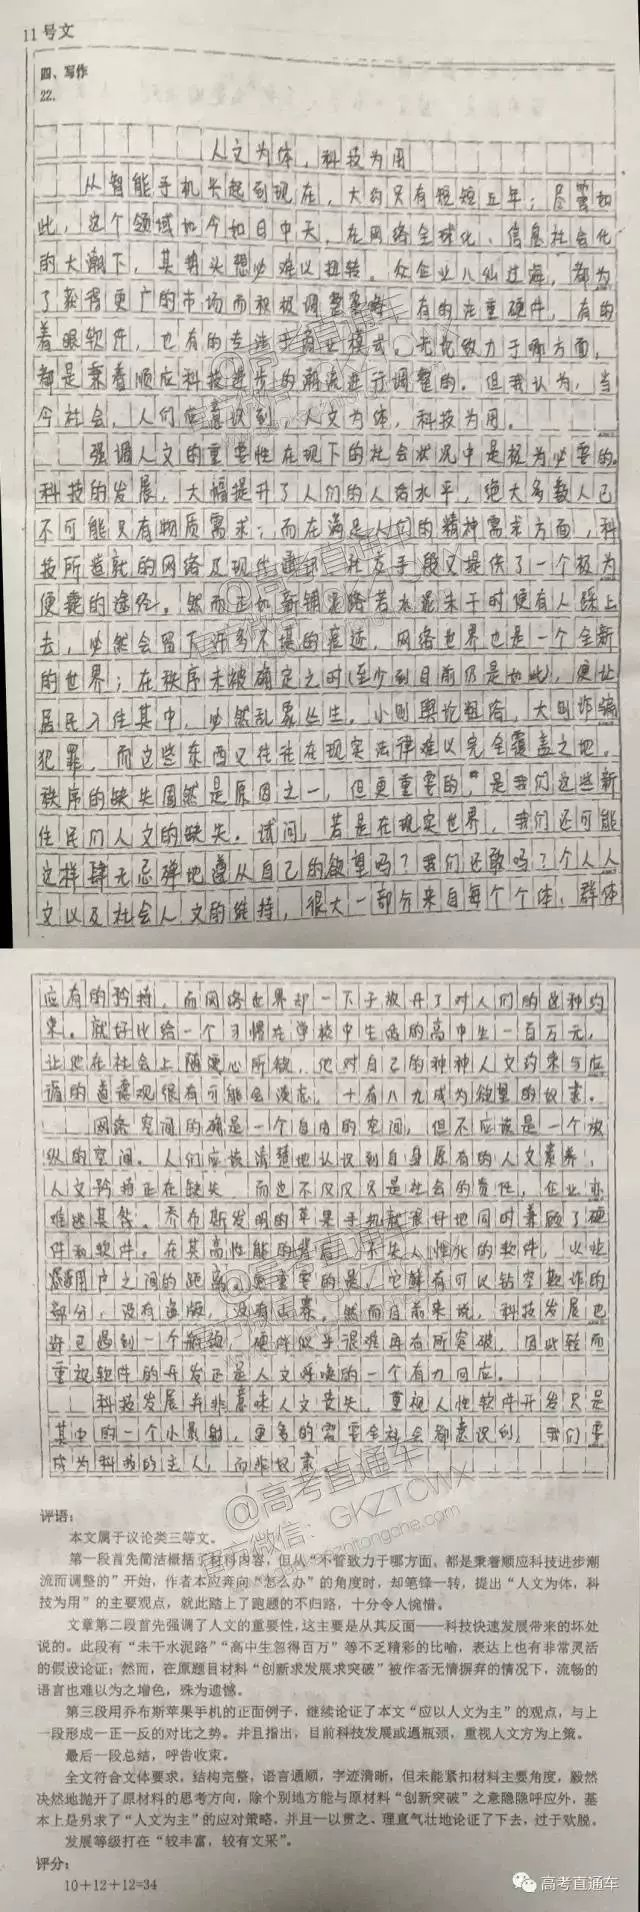 11号文
四、写作
22.
人文为体，科技为用
从智能手机兴起到现在，大约只有短短五年；尽管如
此，这个领域如今如日中天，在网络全球化、信息社会化
的大潮下，其势头想必难以扭转。众企业八仙过海，都为
了获得更广的市场而积极调整策略，有的注重硬件，有的
着眼软件，也有的专注于商业模式。无论致力于哪方面，
都是秉着顺应科技进步的潮流进行调整的。但我认为，当
今社会，人们应意识到，人文为体，科技为用。
强调人文的重要性在现下的社会状况中是极为必要的。
科技的发展，大幅提升了人们的人活水平，绝大多数人已
不可能只有物质需求；而在满足人们的精神需求方面，科
技所造就的网络及现代通讯、社交手段又提供了一个极为
便捷的途径。然而正如新铺泥路若水泥未干时便有人踩上
去，必然会留下许多不堪的痕迹，网络世界也是一个全新
的世界；在秩序未被确定之时(至少到目前仍是如此)，便让
居民入住其中，必然乱象丛生。小则舆论粗俗，大则诈骗
犯罪，而这些东西又往往在现实法律难以完全覆盖之地。
秩序的缺失固然是原因之一，但更重要的，是我们这些新
住民们人文的缺失。试问，若是在现实世界，我们还可能
这样肆无忌惮地遵从自己的欲望吗？我们还敢吗？个人人
文以及社会人文的维持，很大一部分来自每个个体、群体
应有的矜持，而网络世界却一下子放开了对人们的这种约
束。就好比给一个习惯在学校中生活的高中生一百万元，
让他在社会上随便心所欲，他对自己的种种人文约束与应
谓的道德观很有可能会淡忘，十有八九成为欲望的奴隶。
网络空间的确是一个自由的空间，但不应该是一个放
纵的空间。人们应该清楚地认识到自身原有的人文素养、
人文矜持正在缺失，而也不仅仅只是社会的责任，企业亦
难逃其咎。乔布斯发明的苹果手机就很好地同时兼顾了硬
件和软件。在其高性能的背后，不失人性化的软件，以
用户之间的距离，更重要的是，它鲜有可以钻空欺诈的
部分，没有盗版，没有山寨。然而目前来说，科技发展也
许已遇到一个瓶颈，硬件似乎很难再有所突破，因此转而
重视软件的开发正是人文呼唤的一个有力回应。
科技发展并非意味人文丧失，重视人性软件开发只是
其中的一个小影射，更多的需要全社会都意识到，我们要
成为科技的主人，而非奴隶
评语：
本文属于议论类三等文。
第一段首先简洁概括了材料内容，但从“不管致力于哪方面，都是秉着顺应科技进步潮
流而调整的”开始，作者本应奔向“怎么办”的角度时，却笔锋一转，提出“人文为体，科
技为用”的主要观点，就此踏上了跑题的不归路，十分令人惋惜。
文章第二段首先强调了人文的重要性，这主要是从其反面——科技快速发展带来的坏处
说的。此段有“未干水泥路”“高中生忽得百万”等不乏精彩的比喻，表达上也有非常灵活
的假设论证；然而，在原题目材料“创新求发展求突破”被作者无情摒弃的情况下，流畅的
语言也难以为之增色，殊为遗憾。
第三段用乔布斯苹果手机的正面例子，继续论证了本文“应以人文为主”的观点，与上
一段形成一正一反的对比之势。并且指出，目前科技发展或遇瓶颈，重视人文方为上策。
最后一段总结，呼告收束。
全文符合文体要求，结构完整，语言通顺，字迹清晰，但未能紧扣材料主要角度，毅然
决然地抛开了原材料的思考方向，除个别地方能与原材料“创新突破”之意隐隐呼应外，基
本上是另求了“人文为主”的应对策略，并且一以贯之、理直气壮地论证了下去，过于欹脱。
发展等级打在“较丰富，较有文采”。
评分：
10+12+12=34
@高考直通车
官方微信：GKZTCWX
高考直通车